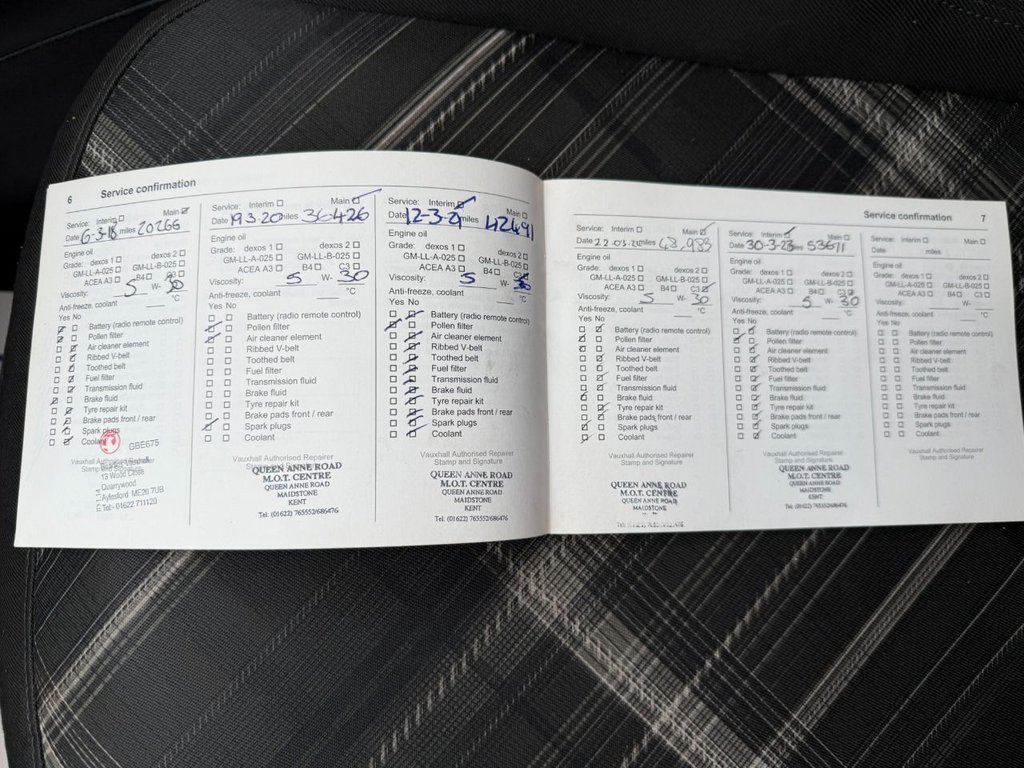 6 Service confirmation
Service: Interim Main
Date 6-3-18 miles 20266
Engine oil
Grade: dexos 1 dexos 2
GM-LL-A-025 GM-LL-B-025
ACEA A3 B4 C3
Viscosity: 5 W- 30
Anti-freeze, coolant °C
Yes No
Battery (radio remote control)
Pollen filter
Air cleaner element
Ribbed V-belt
Toothed belt
Fuel filter
Transmission fluid
Brake fluid
Tyre repair kit
Brake pads front / rear
Spark plugs
Coolant
GBE675
Vauxhall Authorised Repairer
13 Wood Close
Quarrywood
Aylesford ME20 7UB
Tel:- 01622 711120
Service: Interim Main
Date 19 3 20 miles 36-426
Engine oil
Grade: dexos 1 dexos 2
GM-LL-A-025 GM-LL-B-025
ACEA A3 B4 C3
Viscosity: 5 W- 30
Anti-freeze, coolant °C
Yes No
Battery (radio remote control)
Pollen filter
Air cleaner element
Ribbed V-belt
Toothed belt
Fuel filter
Transmission fluid
Brake fluid
Tyre repair kit
Brake pads front / rear
Spark plugs
Coolant
Vauxhall Authorised Repairer
QUEEN ANNE ROAD
M.O.T. CENTRE
QUEEN ANNE ROAD
MAIDSTONE
KENT
Tel: (01622) 765552/686476
Service: Interim Main
Date 12-3-21 miles 42491
Engine oil
Grade: dexos 1 dexos 2
GM-LL-A-025 GM-LL-B-025
ACEA A3 B4 C3
Viscosity: 5 W- 30
Anti-freeze, coolant °C
Yes No
Battery (radio remote control)
Pollen filter
Air cleaner element
Ribbed V-belt
Toothed belt
Fuel filter
Transmission fluid
Brake fluid
Tyre repair kit
Brake pads front / rear
Spark plugs
Coolant
Vauxhall Authorised Repairer
Stamp and Signature
QUEEN ANNE ROAD
M.O.T. CENTRE
QUEEN ANNE ROAD
MAIDSTONE
KENT
Tel: (01622) 765552/686476
Service confirmation 7
Service: Interim Main
Date 22-03-2 miles 43,985
Engine oil
Grade: dexos 1 dexos 2
GM-LL-A-025 GM-LL-B-025
ACEA A3 B4 C3
Viscosity: 5 W- 30
Anti-freeze, coolant °C
Yes No
Battery (radio remote control)
Pollen filter
Air cleaner element
Ribbed V-belt
Toothed belt
Fuel filter
Transmission fluid
Brake fluid
Tyre repair kit
Brake pads front / rear
Spark plugs
Coolant
Vauxhall Authorised Repairer
Stamp and Signature
QUEEN ANNE ROAD
M.O.T. CENTRE
QUEEN ANNE ROAD
MAIDSTONE
Service: Interim Main
Date 30-3-23 miles 53671
Engine oil
Grade: dexos 1 dexos 2
GM-LL-A-025 GM-LL-B-025
ACEA A3 B4 C3
Viscosity: 5 W- 30
Anti-freeze, coolant °C
Yes No
Battery (radio remote control)
Pollen filter
Air cleaner element
Ribbed V-belt
Toothed belt
Fuel filter
Transmission fluid
Brake fluid
Tyre repair kit
Brake pads front / rear
Spark plugs
Coolant
Vauxhall Authorised Repairer
Stamp and Signature
QUEEN ANNE ROAD
M.O.T. CENTRE
QUEEN ANNE ROAD
MAIDSTONE
KENT
Tel: (01622) 765552/686476
Service: Interim Main
Date miles
Engine oil
Grade: dexos 1 dexos 2
GM-LL-A-025 GM-LL-B-025
ACEA A3 B4 C3
Viscosity: W-
Anti-freeze, coolant °C
Yes No
Battery (radio remote control)
Pollen filter
Air cleaner element
Ribbed V-belt
Toothed belt
Fuel filter
Transmission fluid
Brake fluid
Tyre repair kit
Brake pads front / rear
Spark plugs
Coolant
Vauxhall Authorised Repairer
Stamp and Signature